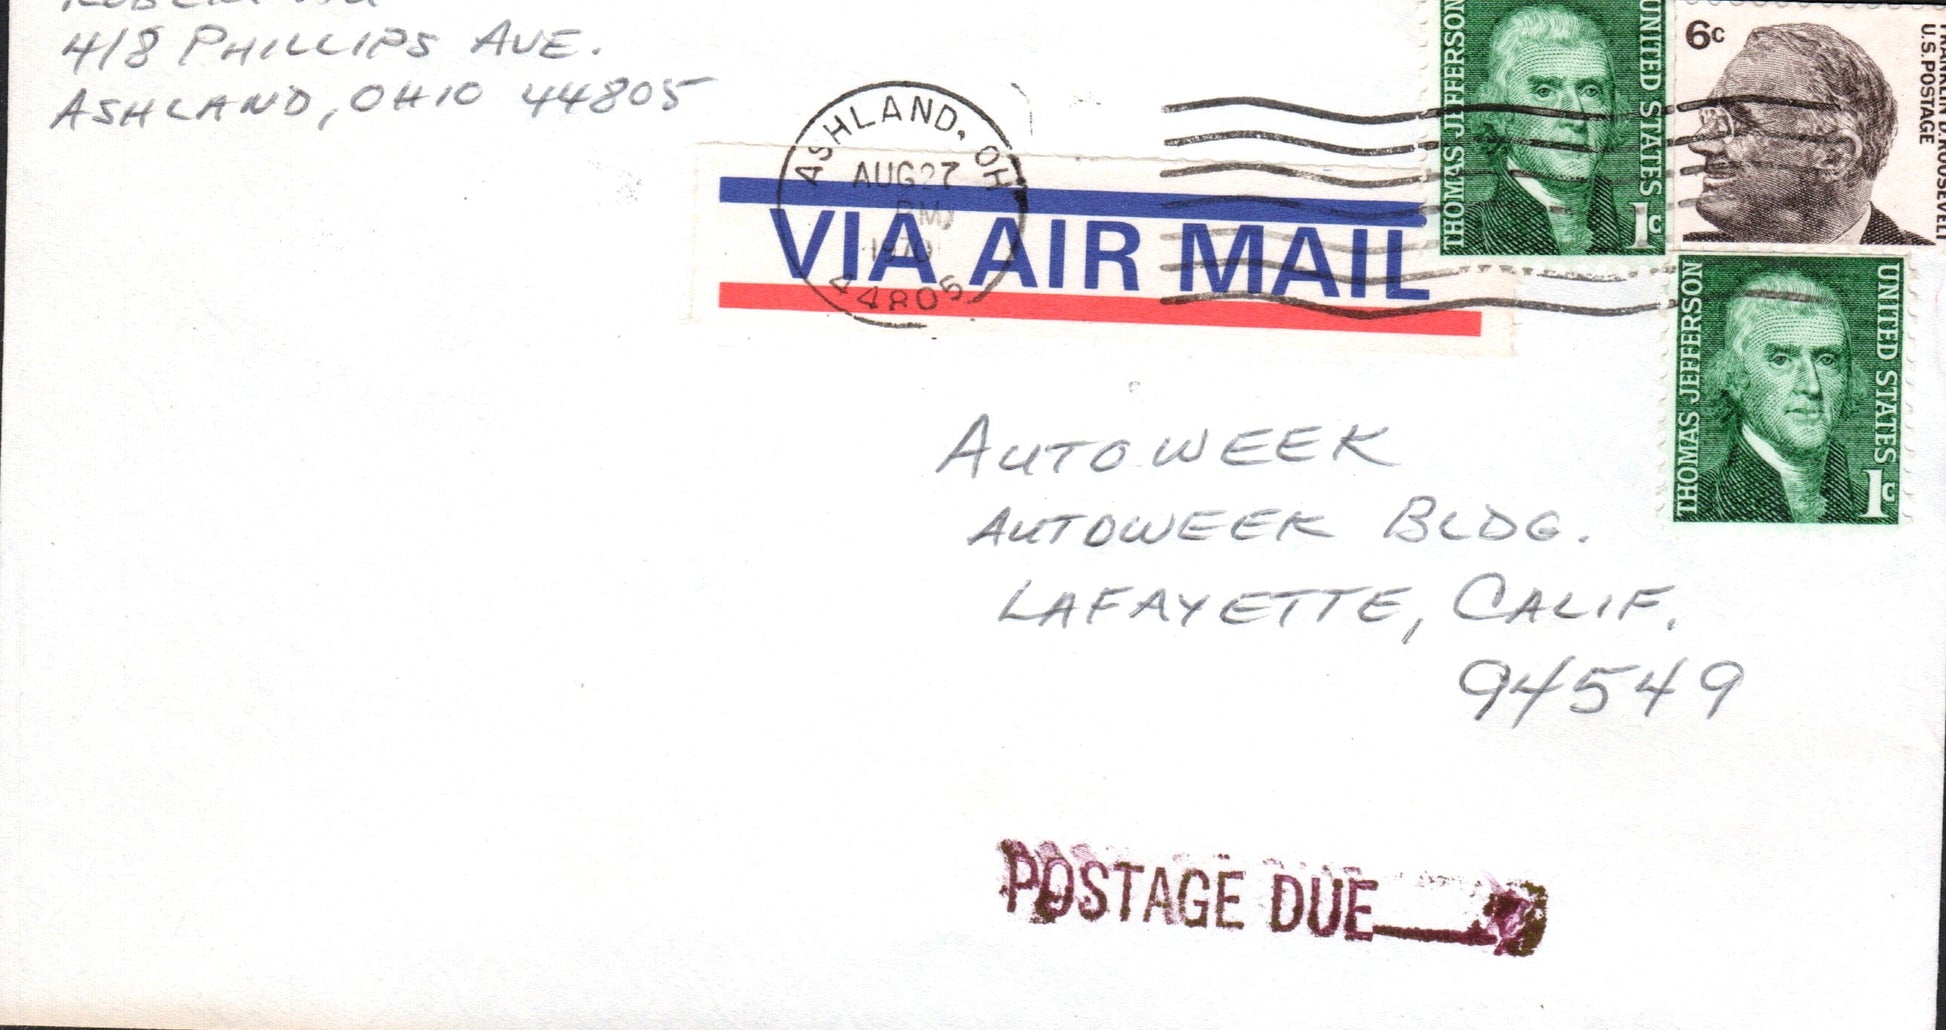 418 PHILLIPS AVE.
ASHLAND, OHIO 44805
ASHLAND, OH
AUG 27
PM
1970
44805
VIA AIR MAIL
THOMAS JEFFERSON
UNITED STATES
1c
6c
FRANKLIN D. ROOSEVELT
U.S. POSTAGE
THOMAS JEFFERSON
UNITED STATES
1c
AUTOWEEK
AUTOWEEK BLDG.
LAFAYETTE, CALIF.
94549
POSTAGE DUE